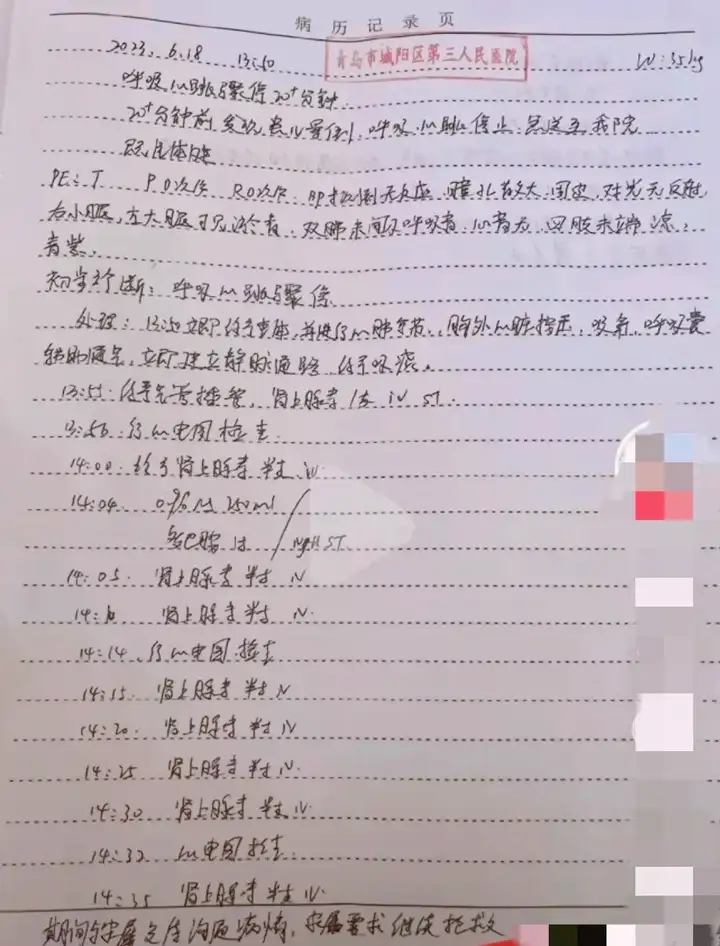 病历记录页
2023.6.18 13:50 青岛市城阳区第三人民医院 W:35kg
呼吸心跳骤停20+分钟
20+分钟前发现患儿晕倒,呼吸心跳停止,急送至我院
PE:T P 0次/分 R 0次/分 BP 测不 无反应,瞳孔散大,固定,对光无反射,
右小腿,左大腿可见淤青,双肺未闻及呼吸音,心音无,四肢末端凉,
青紫。
初步诊断:呼吸心跳骤停
处理:13:50立即 并进行心肺复苏,胸外心脏按压,吸氧,呼吸囊
辅助通气,立即建立静脉通路,给予吸痰。
13:55.给予气管插管,肾上腺素1支 iv ST.
13:56.行心电图检查.
14:00.给予肾上腺素 半支 iv.
14:04. 0.9% NS 250ml
多巴胺 / ivgtt ST
14:05. 肾上腺素 半支 iv
14:10 肾上腺素 半支 iv.
14:14.行心电图检查
14:15. 肾上腺素 半支 iv
14:20. 肾上腺素 半支 iv
14:25 肾上腺素 半支 iv
14:30 肾上腺素 半支 iv.
14:32 心电图检查.
14:35 肾上腺素 半支 iv.
期间与家属交待沟通病情,家属要求继续抢救